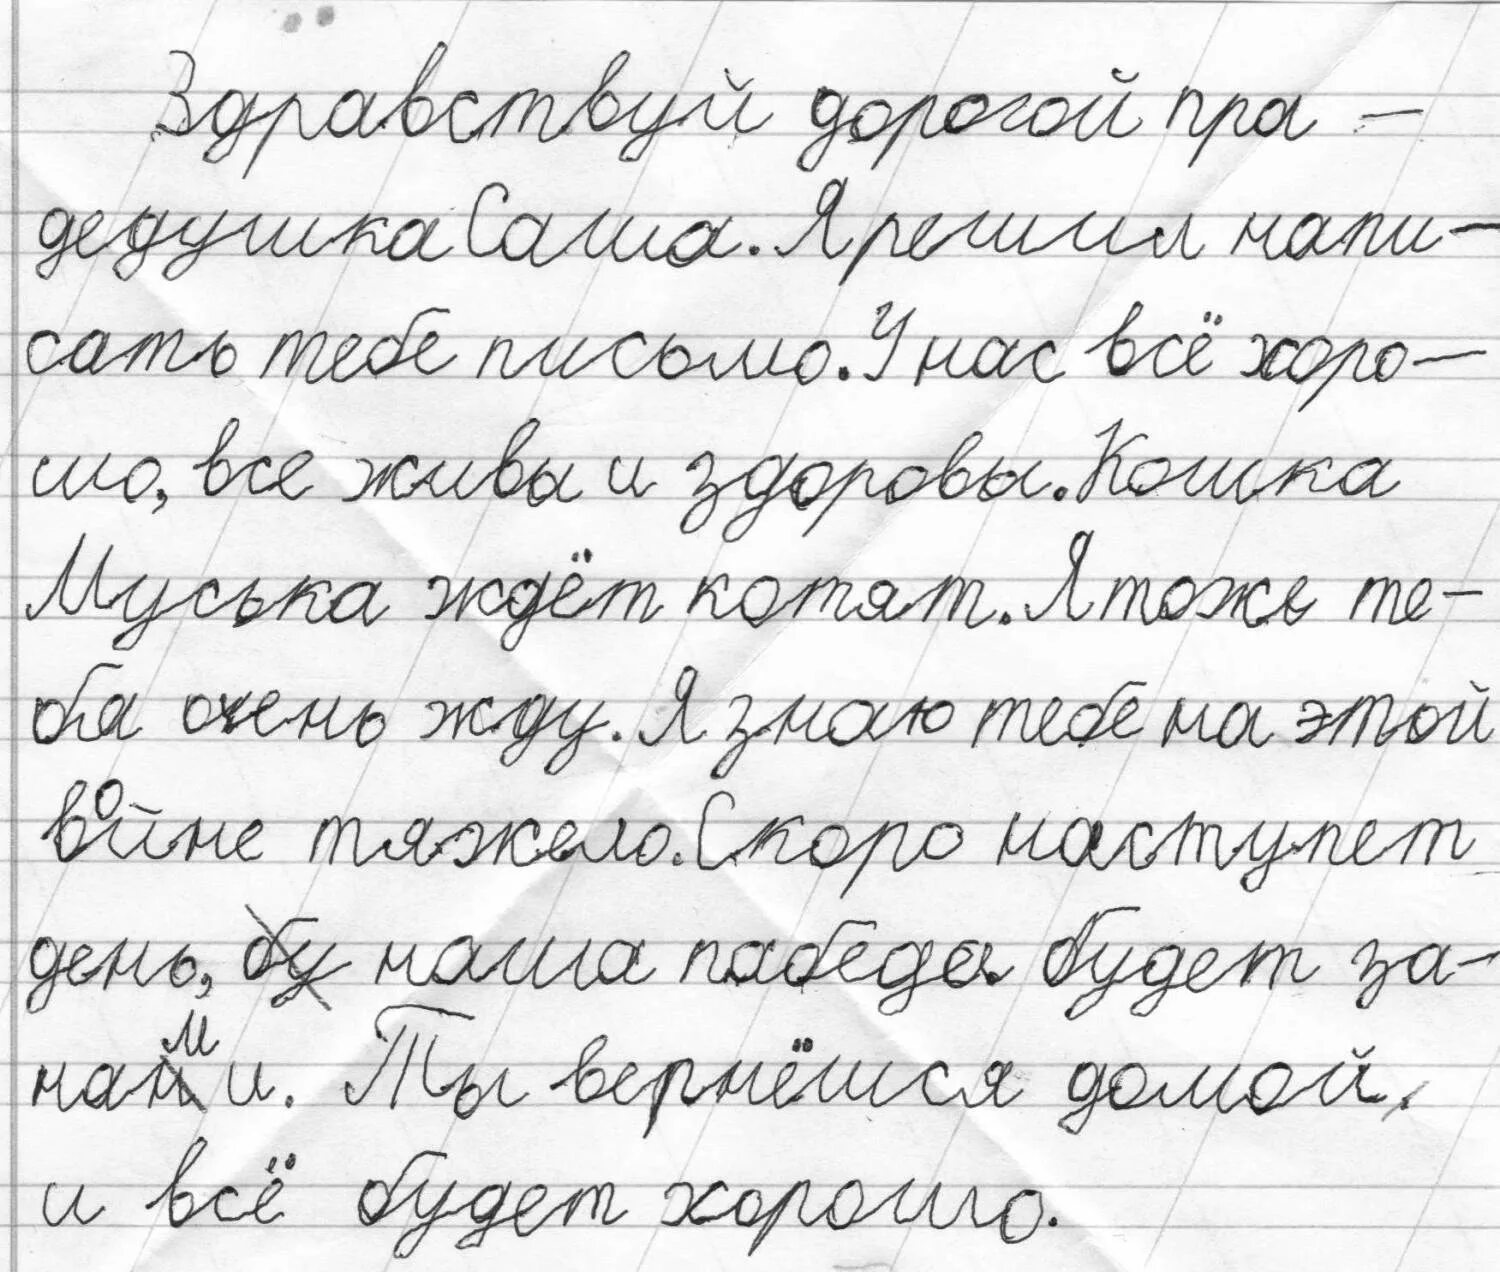 Здравствуй дорогой пра-
дедушка Саша. Я решил напи-
сать тебе письмо. У нас всё хоро-
шо, все живы и здоровы. Кошка
Муська ждёт котят. Я тоже те-
бя очень жду. Я знаю тебе на этой
войне тяжело. Скоро наступет
день, бу наша пабеда будет за
нами. Ты вернёшся домой,
и всё будет хорошо.